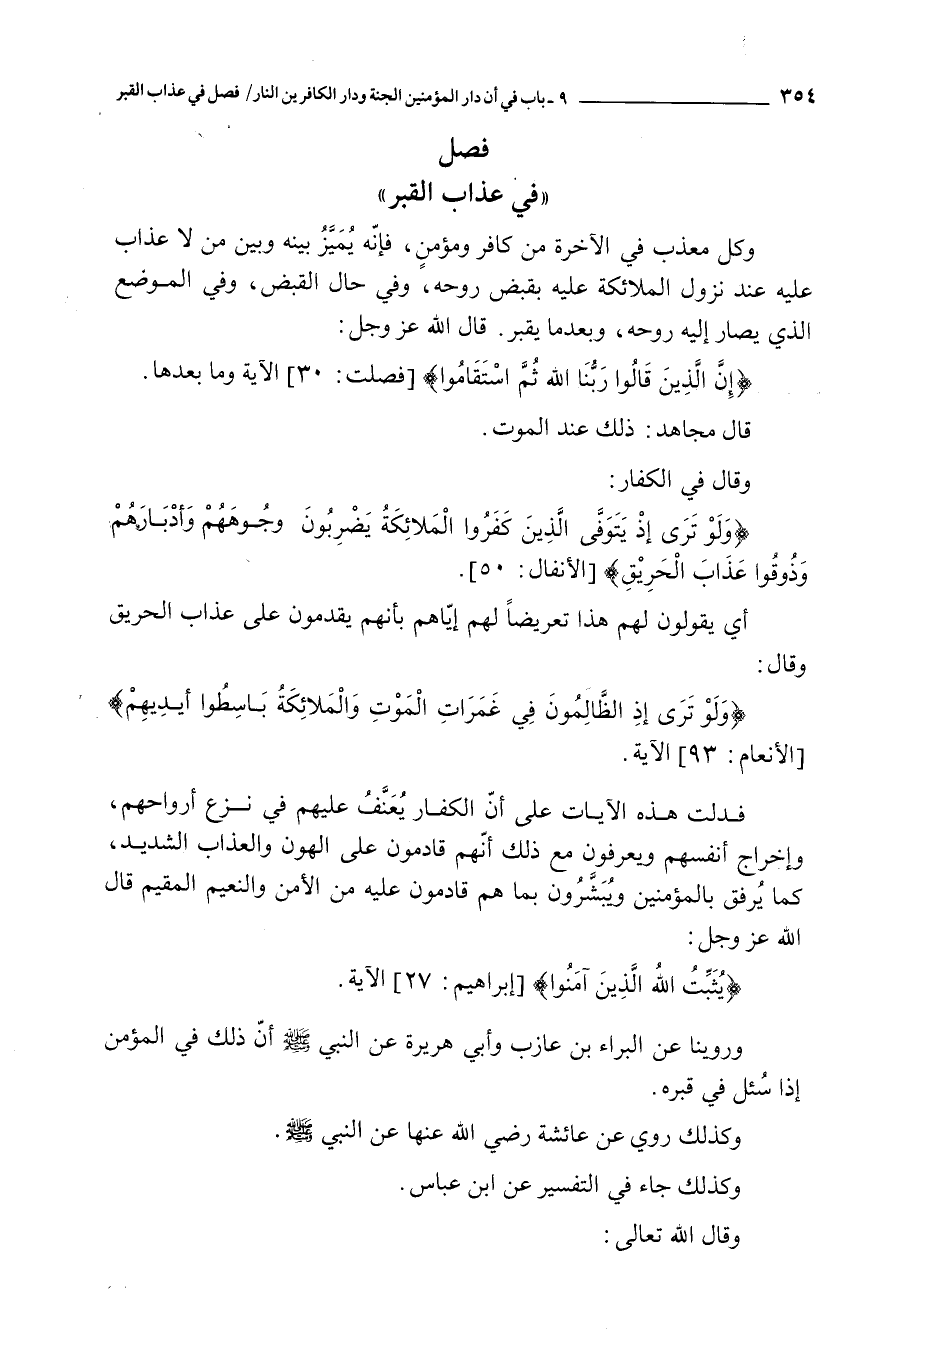 ٣٥٤ ٩ ـ باب في أن دار المؤمنين الجنة ودار الكافرين النار/ فصل في عذاب القبر
فصل
«في عذاب القبر»
وكل معذب في الآخرة من كافر ومؤمنٍ، فإنّه يُمَيَّزُ بينه وبين من لا عذاب
عليه عند نزول الملائكة عليه بقبض روحه، وفي حال القبض، وفي الموضع
الذي يصار إليه روحه، وبعدما يقبر. قال الله عز وجل:
﴿إِنَّ الَّذِينَ قَالُوا رَبُّنَا الله ثُمَّ اسْتَقَامُوا﴾ [فصلت: ٣٠] الآية وما بعدها.
قال مجاهد: ذلك عند الموت.
وقال في الكفار:
﴿وَلَوْ تَرَى إذْ يَتَوَفَّى الَّذِينَ كَفَرُوا الْمَلائِكَةُ يَضْرِبُونَ وجُوهَهُمْ وَأَدْبَارَهُمْ
وَذُوقُوا عَذَابَ الْحَرِيْقِ﴾ [الأنفال: ٥٠].
أي يقولون لهم هذا تعريضاً لهم إيّاهم بأنهم يقدمون على عذاب الحريق
وقال:
﴿وَلَوْ تَرَى إذِ الظَّالِمُونَ فِي غَمَرَاتِ الْمَوْتِ وَالْمَلائِكَةُ بَاسِطُوا أيدِيهِمْ﴾
[الأنعام: ٩٣] الآية.
فدلت هذه الآيات على أنّ الكفار يُعَنَّفُ عليهم في نزع أرواحهم،
وإخراج أنفسهم ويعرفون مع ذلك أنّهم قادمون على الهون والعذاب الشديد،
كما يُرفق بالمؤمنين ويُبَشَّرُون بما هم قادمون عليه من الأمن والنعيم المقيم قال
الله عز وجل:
﴿يُثَبِّتُ اللهُ الَّذِينَ آمَنُوا﴾ [إبراهيم: ٢٧] الآية.
وروينا عن البراء بن عازب وأبي هريرة عن النبي ﷺ أنّ ذلك في المؤمن
إذا سُئل في قبره.
وكذلك روي عن عائشة رضي الله عنها عن النبي ﷺ.
وكذلك جاء في التفسير عن ابن عباس.
وقال الله تعالى: